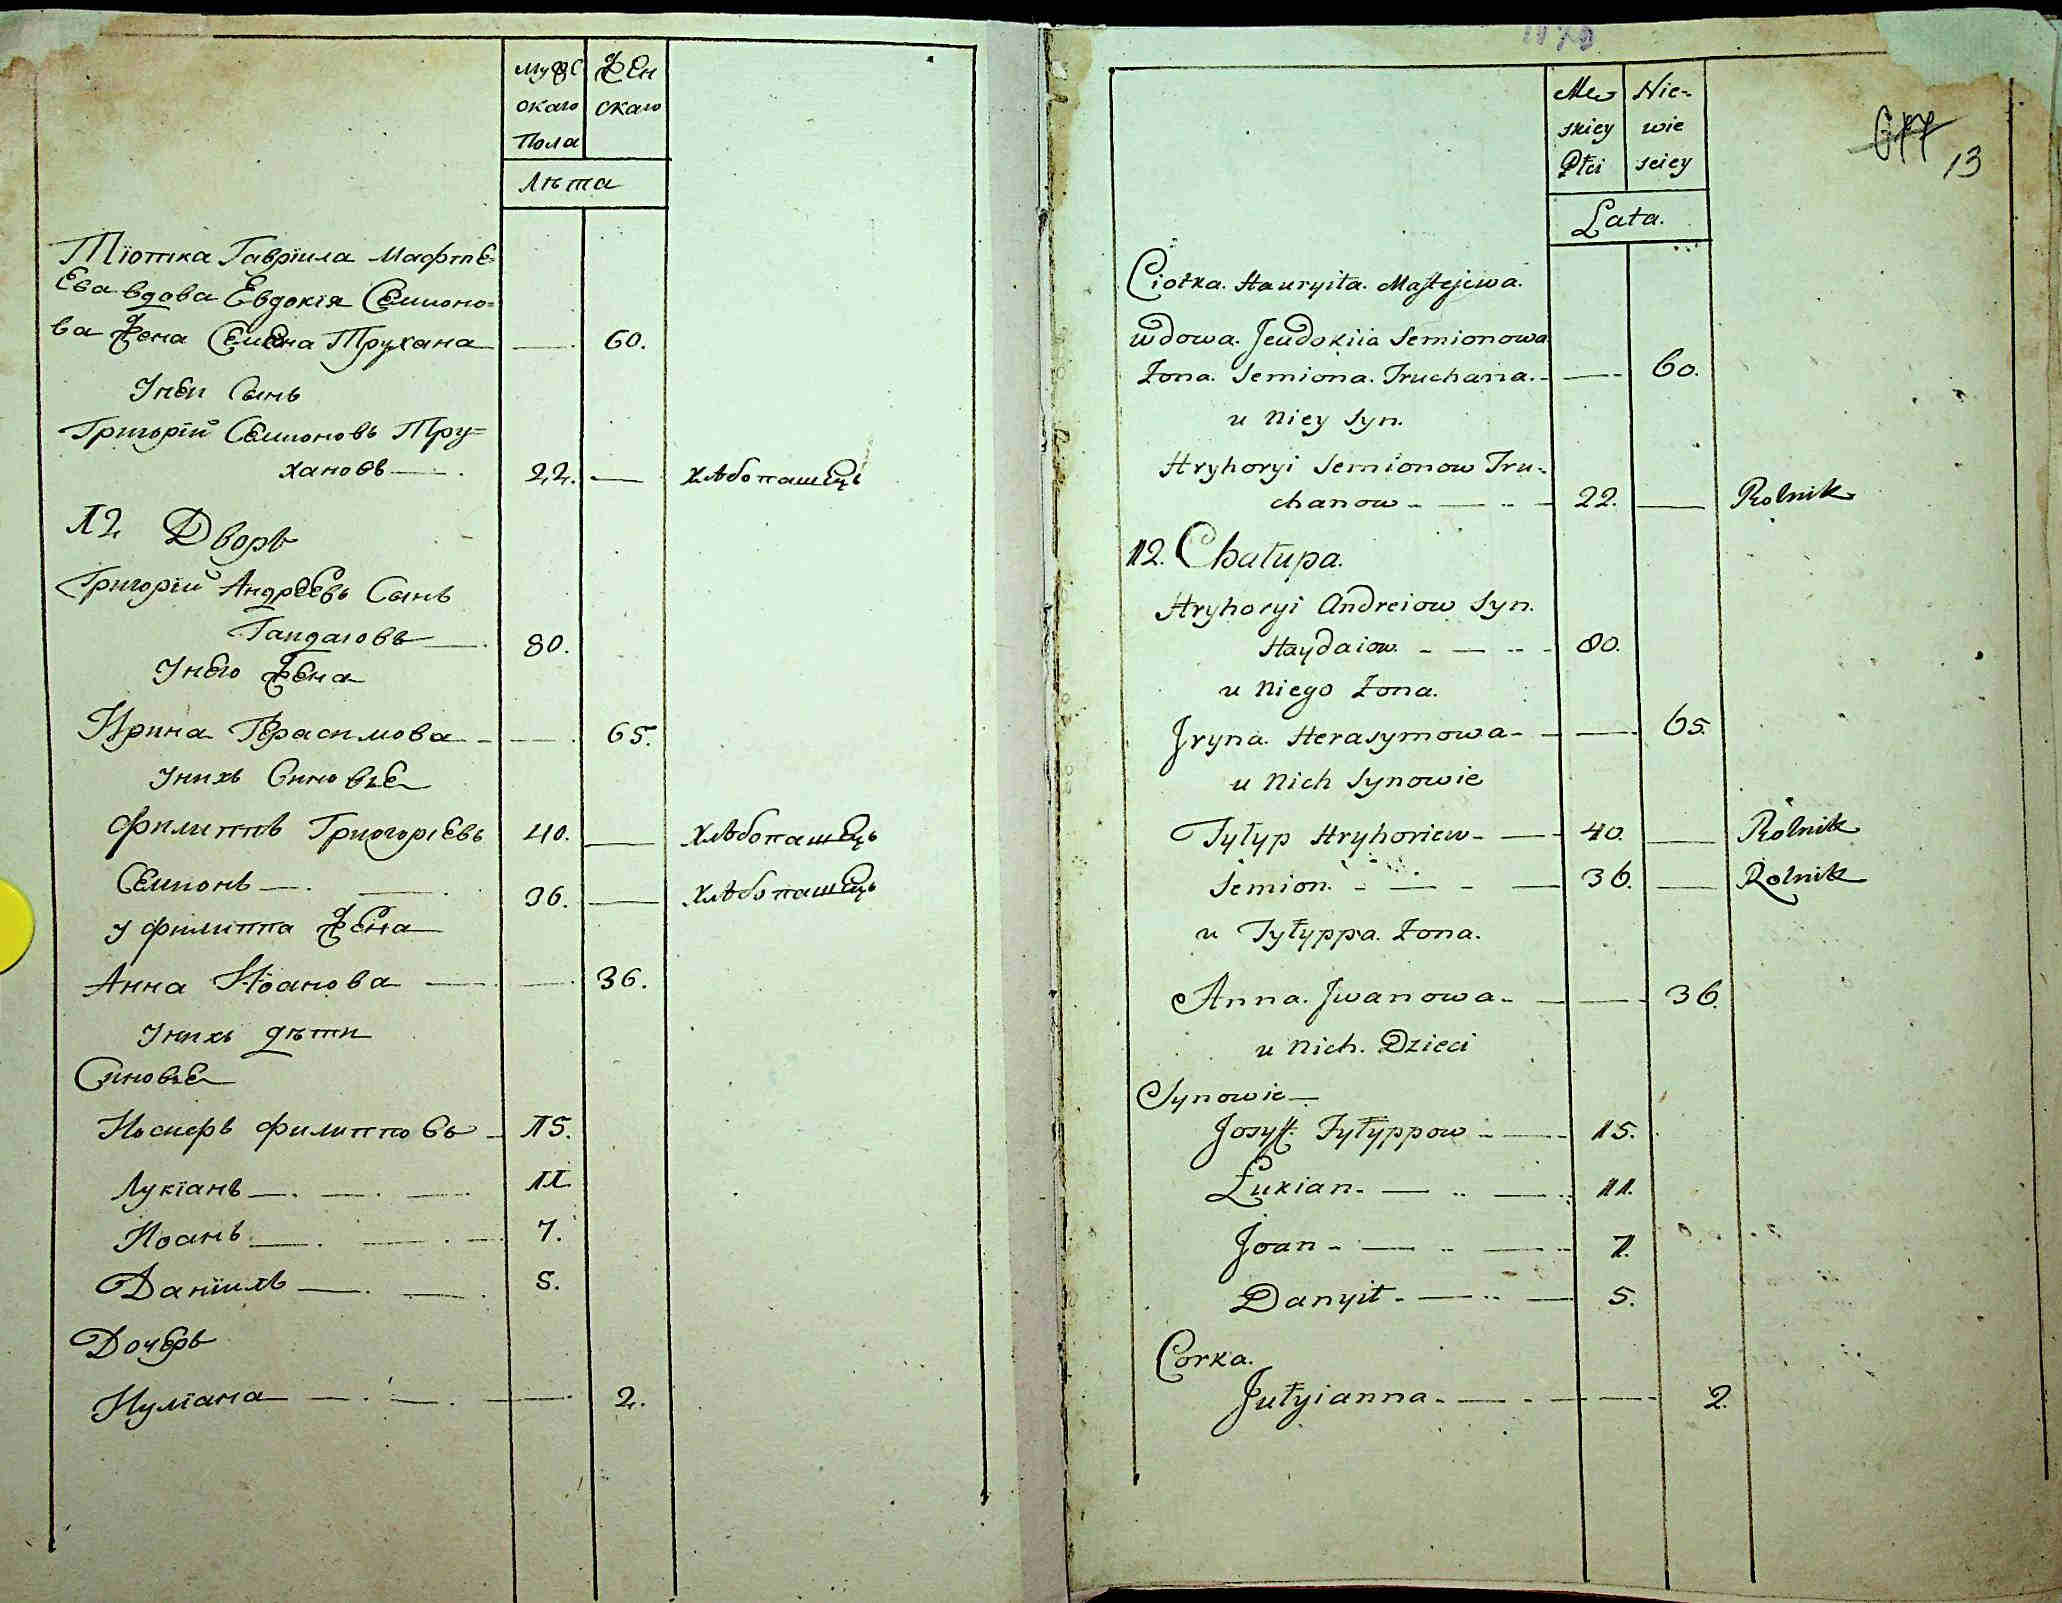 Мужс Жен
скаго скаго
Пола
Лѣта
Тїотка Гаврїила Мафтѣ-
Ева вдова Евдокїя Семионо-
ва Жена Семена Трухана — 60.
Унеи Сынъ
Григорїй Семионовъ Тру=
хановъ — 22. — хлѣбопашецъ
12 Дворъ
Григорїй Андреевъ Сынъ
Гаидаювъ — 80.
Унего Жена
Ирина Герасимова — 65.
Унихъ Синовѣе
Филиппъ Григориевъ 40. — хлѣбопашецъ
Семионъ — 36. — хлѣбопашецъ
У филиппа Жена
Анна Иоанова — 36.
Унихъ дѣти
Синовѣе
Иосифъ филипповъ — 15.
Лукїанъ — 11
Иоанъ — 7.
Данїилъ — 5.
Дочеръ
Иулїана — 2.
Mes Nie-
skiey wie
Płci sciey
Lata.
13
Ciotka. Hauryiła. Maftejewa.
wdowa. Jeudokiia Semionowa
Żona. Semiona. Truchana. — 60.
u Niey Syn.
Hryhoryi Semionow Tru-
chanow — 22. — Rolnik
12. Chałupa.
Hryhoryi Andreiow Syn.
Haydaiow. — 80.
u Niego Żona.
Jryna. Herasymowa — 65.
u Nich Synowie
Fyłyp Hryhoriew — 40. — Rolnik
Semion. — 36. — Rolnik
u Fyłyppa. Żona.
Anna. Jwanowa — 36.
u Nich. Dzieci
Synowie —
Josyff. Fyłyppow — 15.
Łukian. — 11.
Joan — 7.
Danyił — 5.
Corka.
Jułyianna — 2.